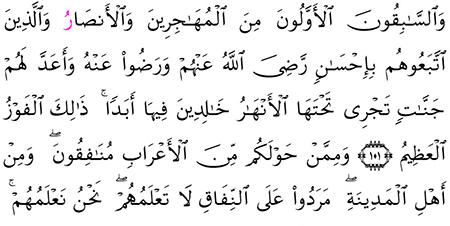 وَٱلسَّـٰبِقُونَ ٱلْأَوَّلُونَ مِنَ ٱلْمُهَـٰجِرِينَ وَٱلْأَنصَارُ وَٱلَّذِينَ
ٱتَّبَعُوهُم بِإِحْسَـٰنٍ رَّضِىَ ٱللَّهُ عَنْهُمْ وَرَضُوا۟ عَنْهُ وَأَعَدَّ لَهُمْ
جَنَّـٰتٍ تَجْرِى تَحْتَهَا ٱلْأَنْهَـٰرُ خَـٰلِدِينَ فِيهَا أَبَدًا ۚ ذَٰلِكَ ٱلْفَوْزُ
ٱلْعَظِيمُ ﴿١٠١﴾ وَمِمَّنْ حَوْلَكُم مِّنَ ٱلْأَعْرَابِ مُنَـٰفِقُونَ ۖ وَمِنْ
أَهْلِ ٱلْمَدِينَةِ ۖ مَرَدُوا۟ عَلَى ٱلنِّفَاقِ لَا تَعْلَمُهُمْ ۖ نَحْنُ نَعْلَمُهُمْ ۚ